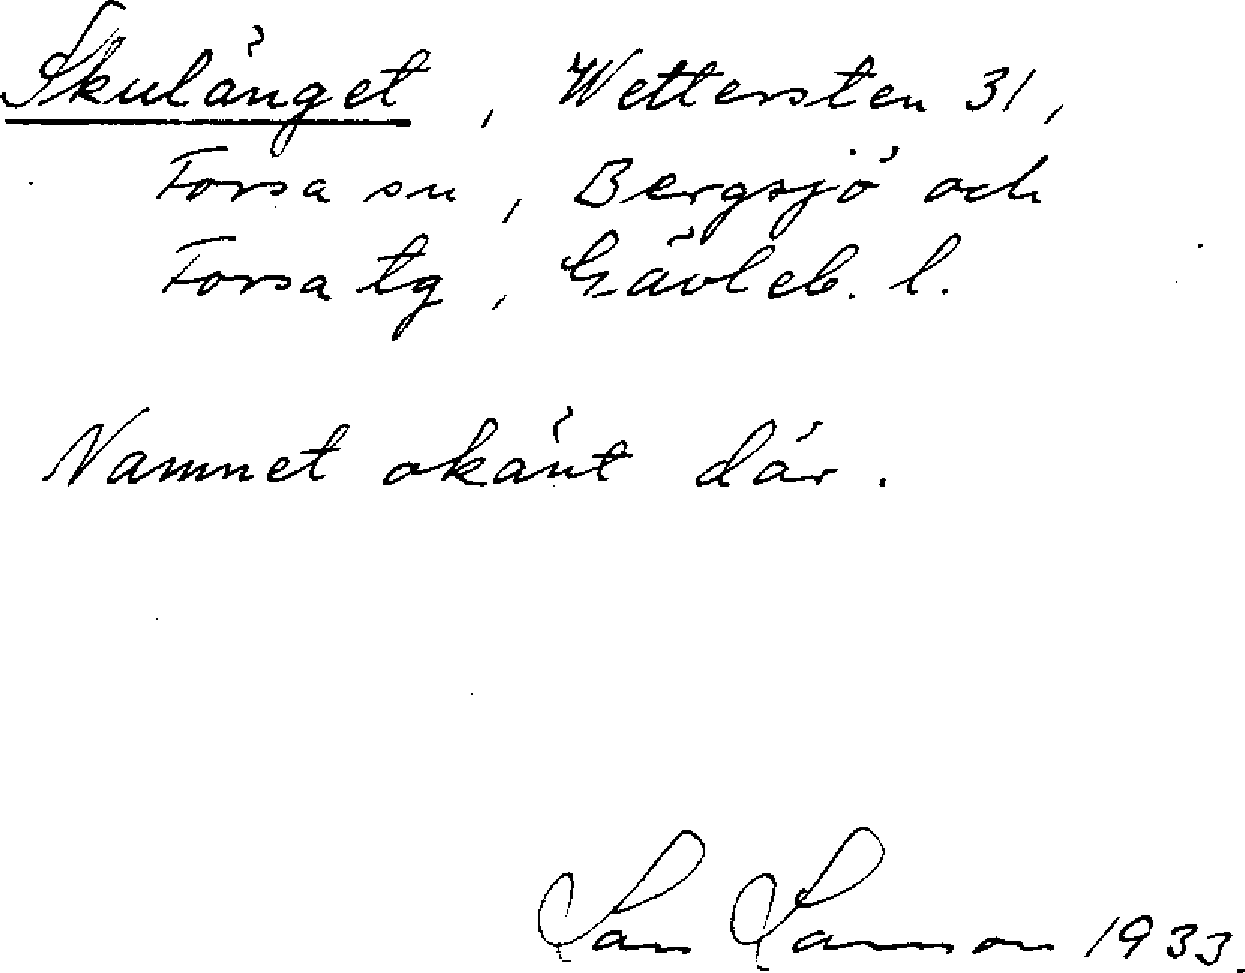 Skulänget, Wettersten 31,
Forsa sn, Bergsjö och
Forsa tg, Gävleb. l.
Namnet okänt där.
Lars Larsson 1933.